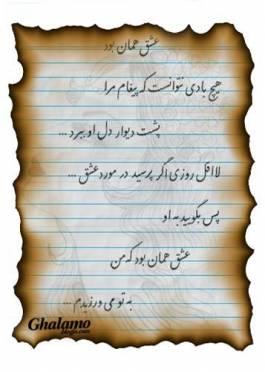 عشق همان بود
هیچ بادی نتوانست که پیغام مرا
پشت دیوار دل او ببرد ...
لااقل روزی اگر پرسید در مورد عشق ...
پس بگویید به او
عشق همان بود که من
به تو می ورزیدم ...
Ghalamo